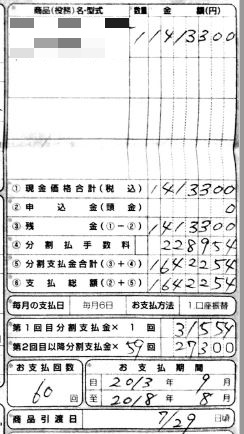 商品(役務)名・型式 数量 金 額(円)
1 1413300
① 現金価格合計(税 込) 1413300
② 申 込 金(頭 金) 0
③ 残 金(①-②) 1413300
④ 分 割 払 手 数 料 228954
⑤ 分割支払金合計(③+④) 1642254
⑥ 支 払 総 額(②+⑤) 1642254
毎月の支払日 毎月6日 お支払方法 1.口座振替
第1回目分割支払金× 1 回 31554
第2回目以降分割支払金× 59 回 27300
お支払回数 お 支 払 期 間
60 回
自 2013 年 9 月
至 2018 年 8 月
商品引渡日 7/29 日頃